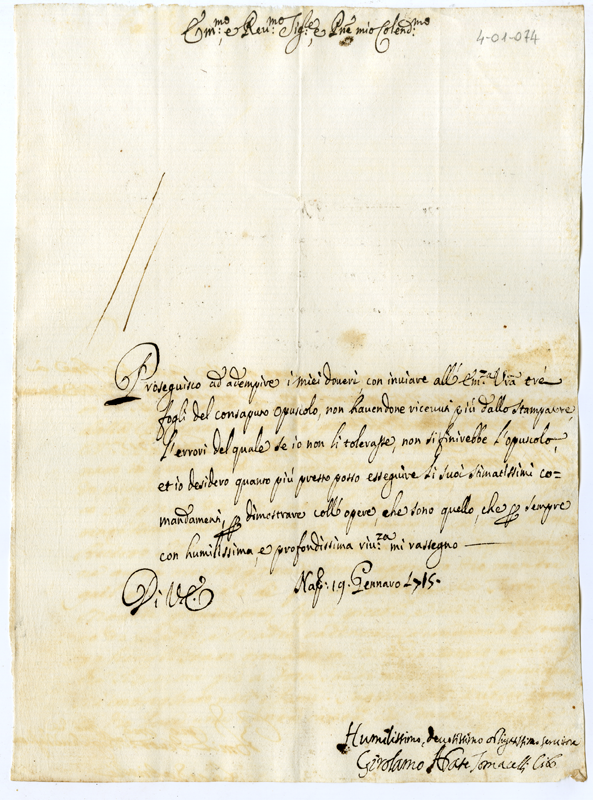 Em.mo, e Rev.mo Sig.re, e Pne mio Colend.mo
4-01-074
Proseguisco ad adempire i miei doveri con inviare all' Em.za Vra tré
fogli del consaputo opuscolo, non havendone ricevuti più dallo stampatore,
l'errori del quale se io non li tolerasse, non si finirebbe l'opuscolo,
et io desidero quanto più presto posso esseguire li suoi stimatissimi co=
mandamenti, per dimostrare coll' opere, che sono quello, che per sempre
con humilissima, e profondissima riv.za mi rassegno
Di V.E.
Nap. 19. Gennaro 1715.
Humilissimo, devotissimo obligatissimo servitore
Girolamo Abate Tomacelli Cibo